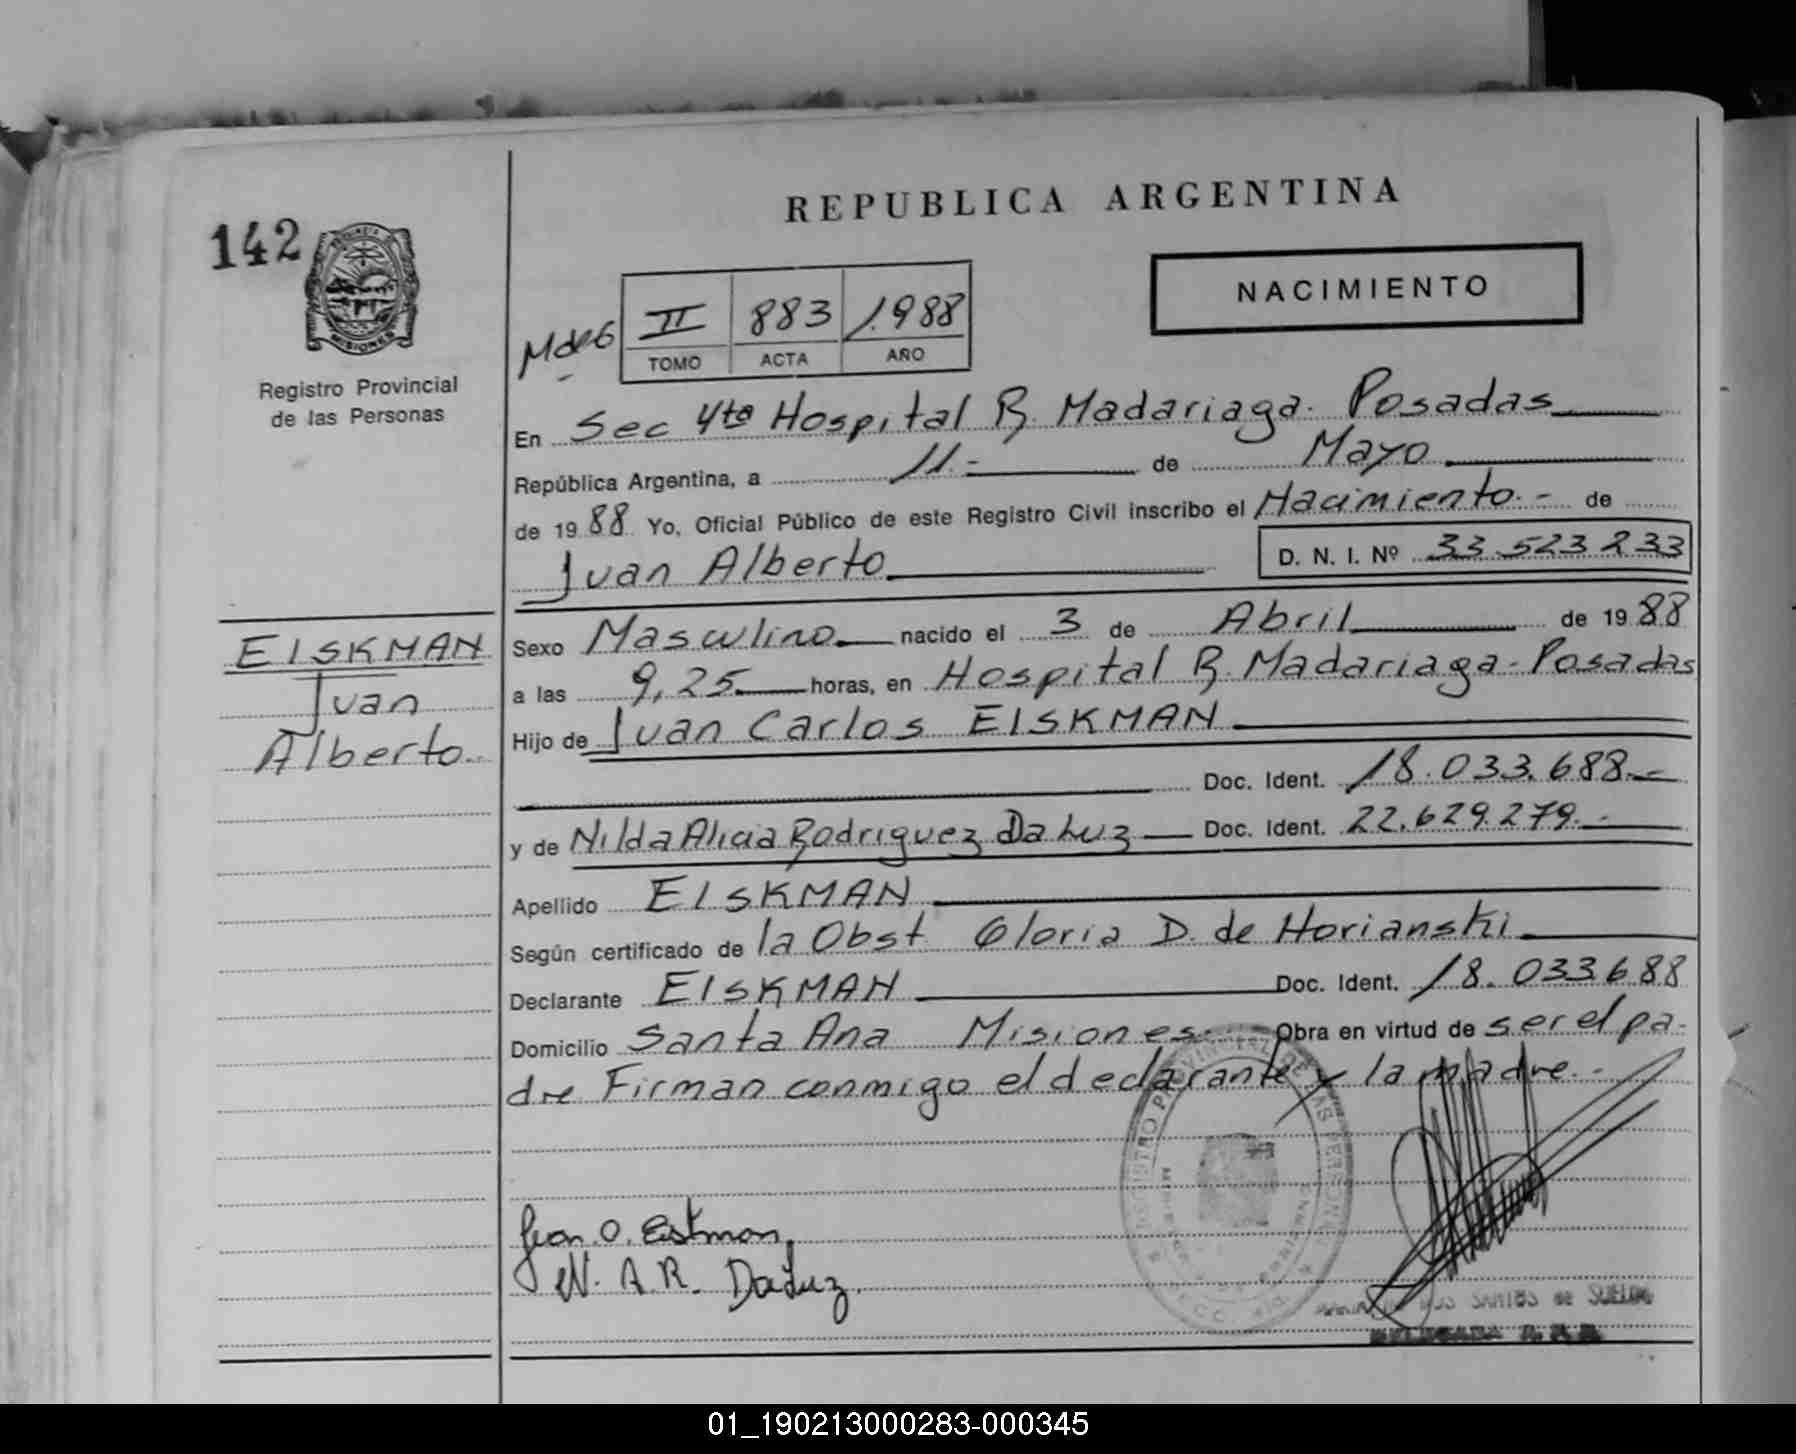 REPUBLICA ARGENTINA
142
PROVINCIA DE
MISIONES
NACIMIENTO
Registro Provincial
de las Personas
II 883 1.988
TOMO ACTA AÑO
En Sec 4ta Hospital R. Madariaga. Posadas
República Argentina, a 11.- de Mayo
de 19 88 Yo, Oficial Público de este Registro Civil inscribo el Nacimiento.- de
Juan Alberto D. N. I. Nº 33.523 233
EISKMAN
Juan
Alberto.
Sexo Masculino nacido el 3 de Abril de 19 88
a las 9,25 horas, en Hospital R. Madariaga-Posadas
Hijo de Juan Carlos EISKMAN
Doc. Ident. 18.033.688.-
y de Nilda Alicia Rodriguez Da Luz Doc. Ident. 22.629.279.-
Apellido EISKMAN
Según certificado de la Obst Gloria D. de Horianski
Declarante EISKMAN Doc. Ident. 18.033.688
Domicilio Santa Ana Misiones. Obra en virtud de ser el pa-
dre Firman conmigo el declarante y la madre.-
REGISTRO PROVINCIAL DE LAS PERSONAS
N. A. R. DaLuz.
DOS SANTOS de SUELDO
DELEGADA
01_190213000283-000345